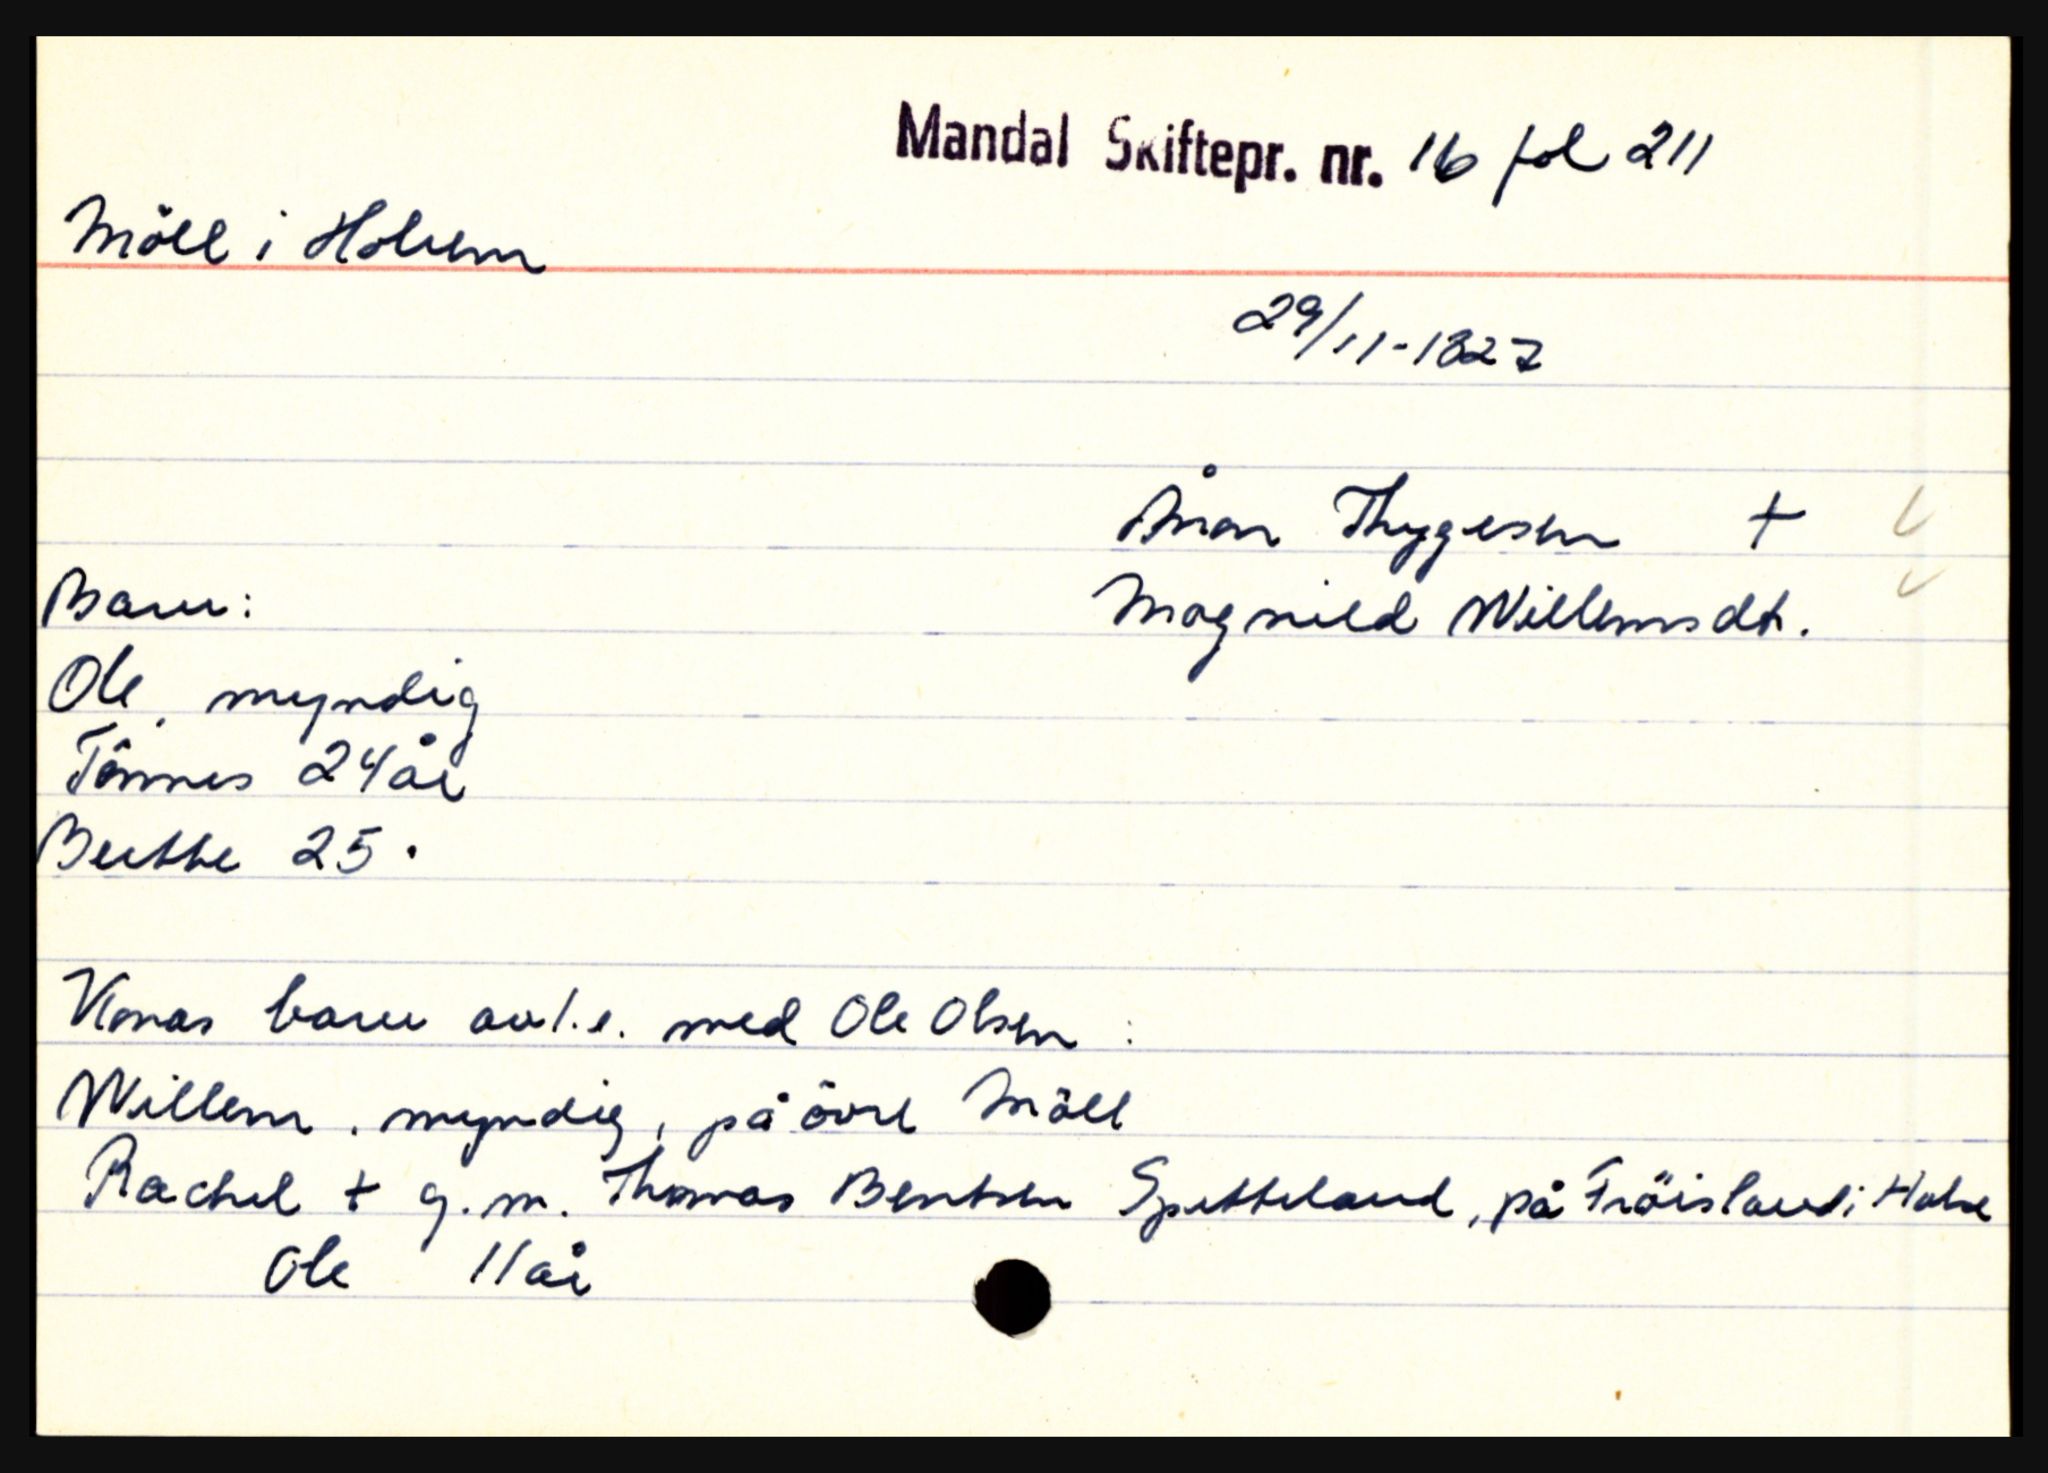 Mandal Skiftepr. nr. 16 fol 211
Möll i Holum
29/11-1827
Ånon Thygesen +
Magnild Willemsdt.
Barn:
Ole, myndig
Tönnes 24 år
Berthe 25 "
Konas barn av 1.e. med Ole Olsen :
Willem, myndig, på övre Möll
Rachel + g.m. Thomas Bentsen Spetteland, på Fröisland i Halse
Ole 11 år